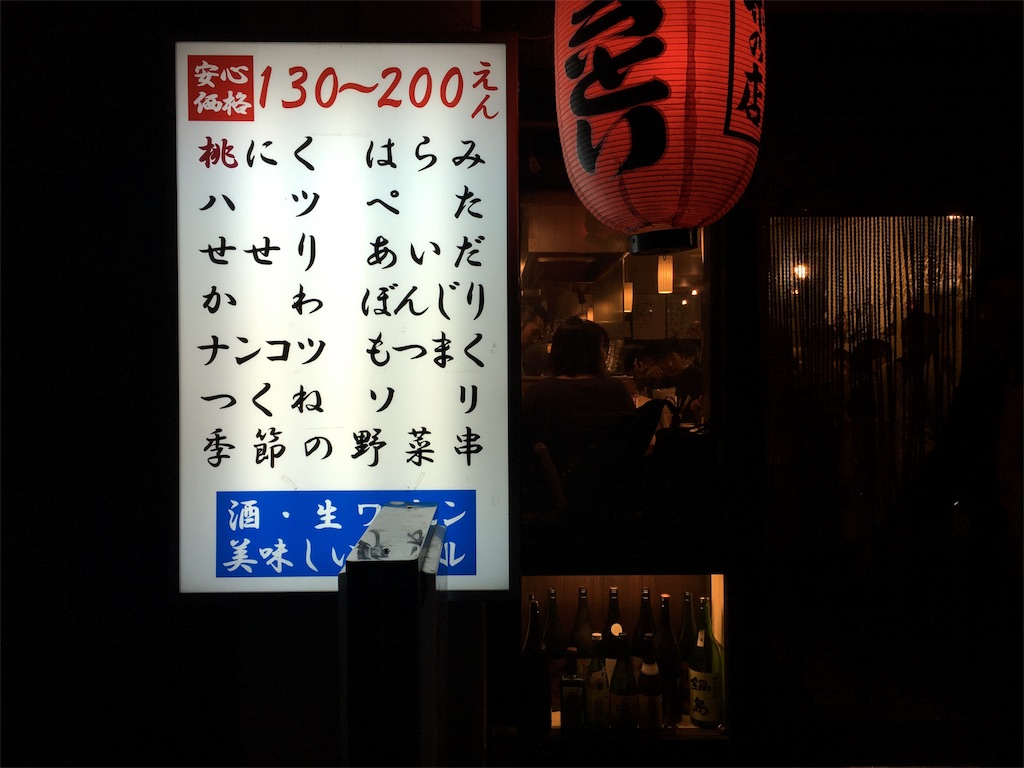 安心
価格
130〜200えん
桃にく はらみ
ハツ ぺた
せせり あいだ
かわ ぼんじり
ナンコツ もつまく
つくね ソリ
季節の野菜串
酒・生ワ ン
美味しい ル
せい
の店
鍋島